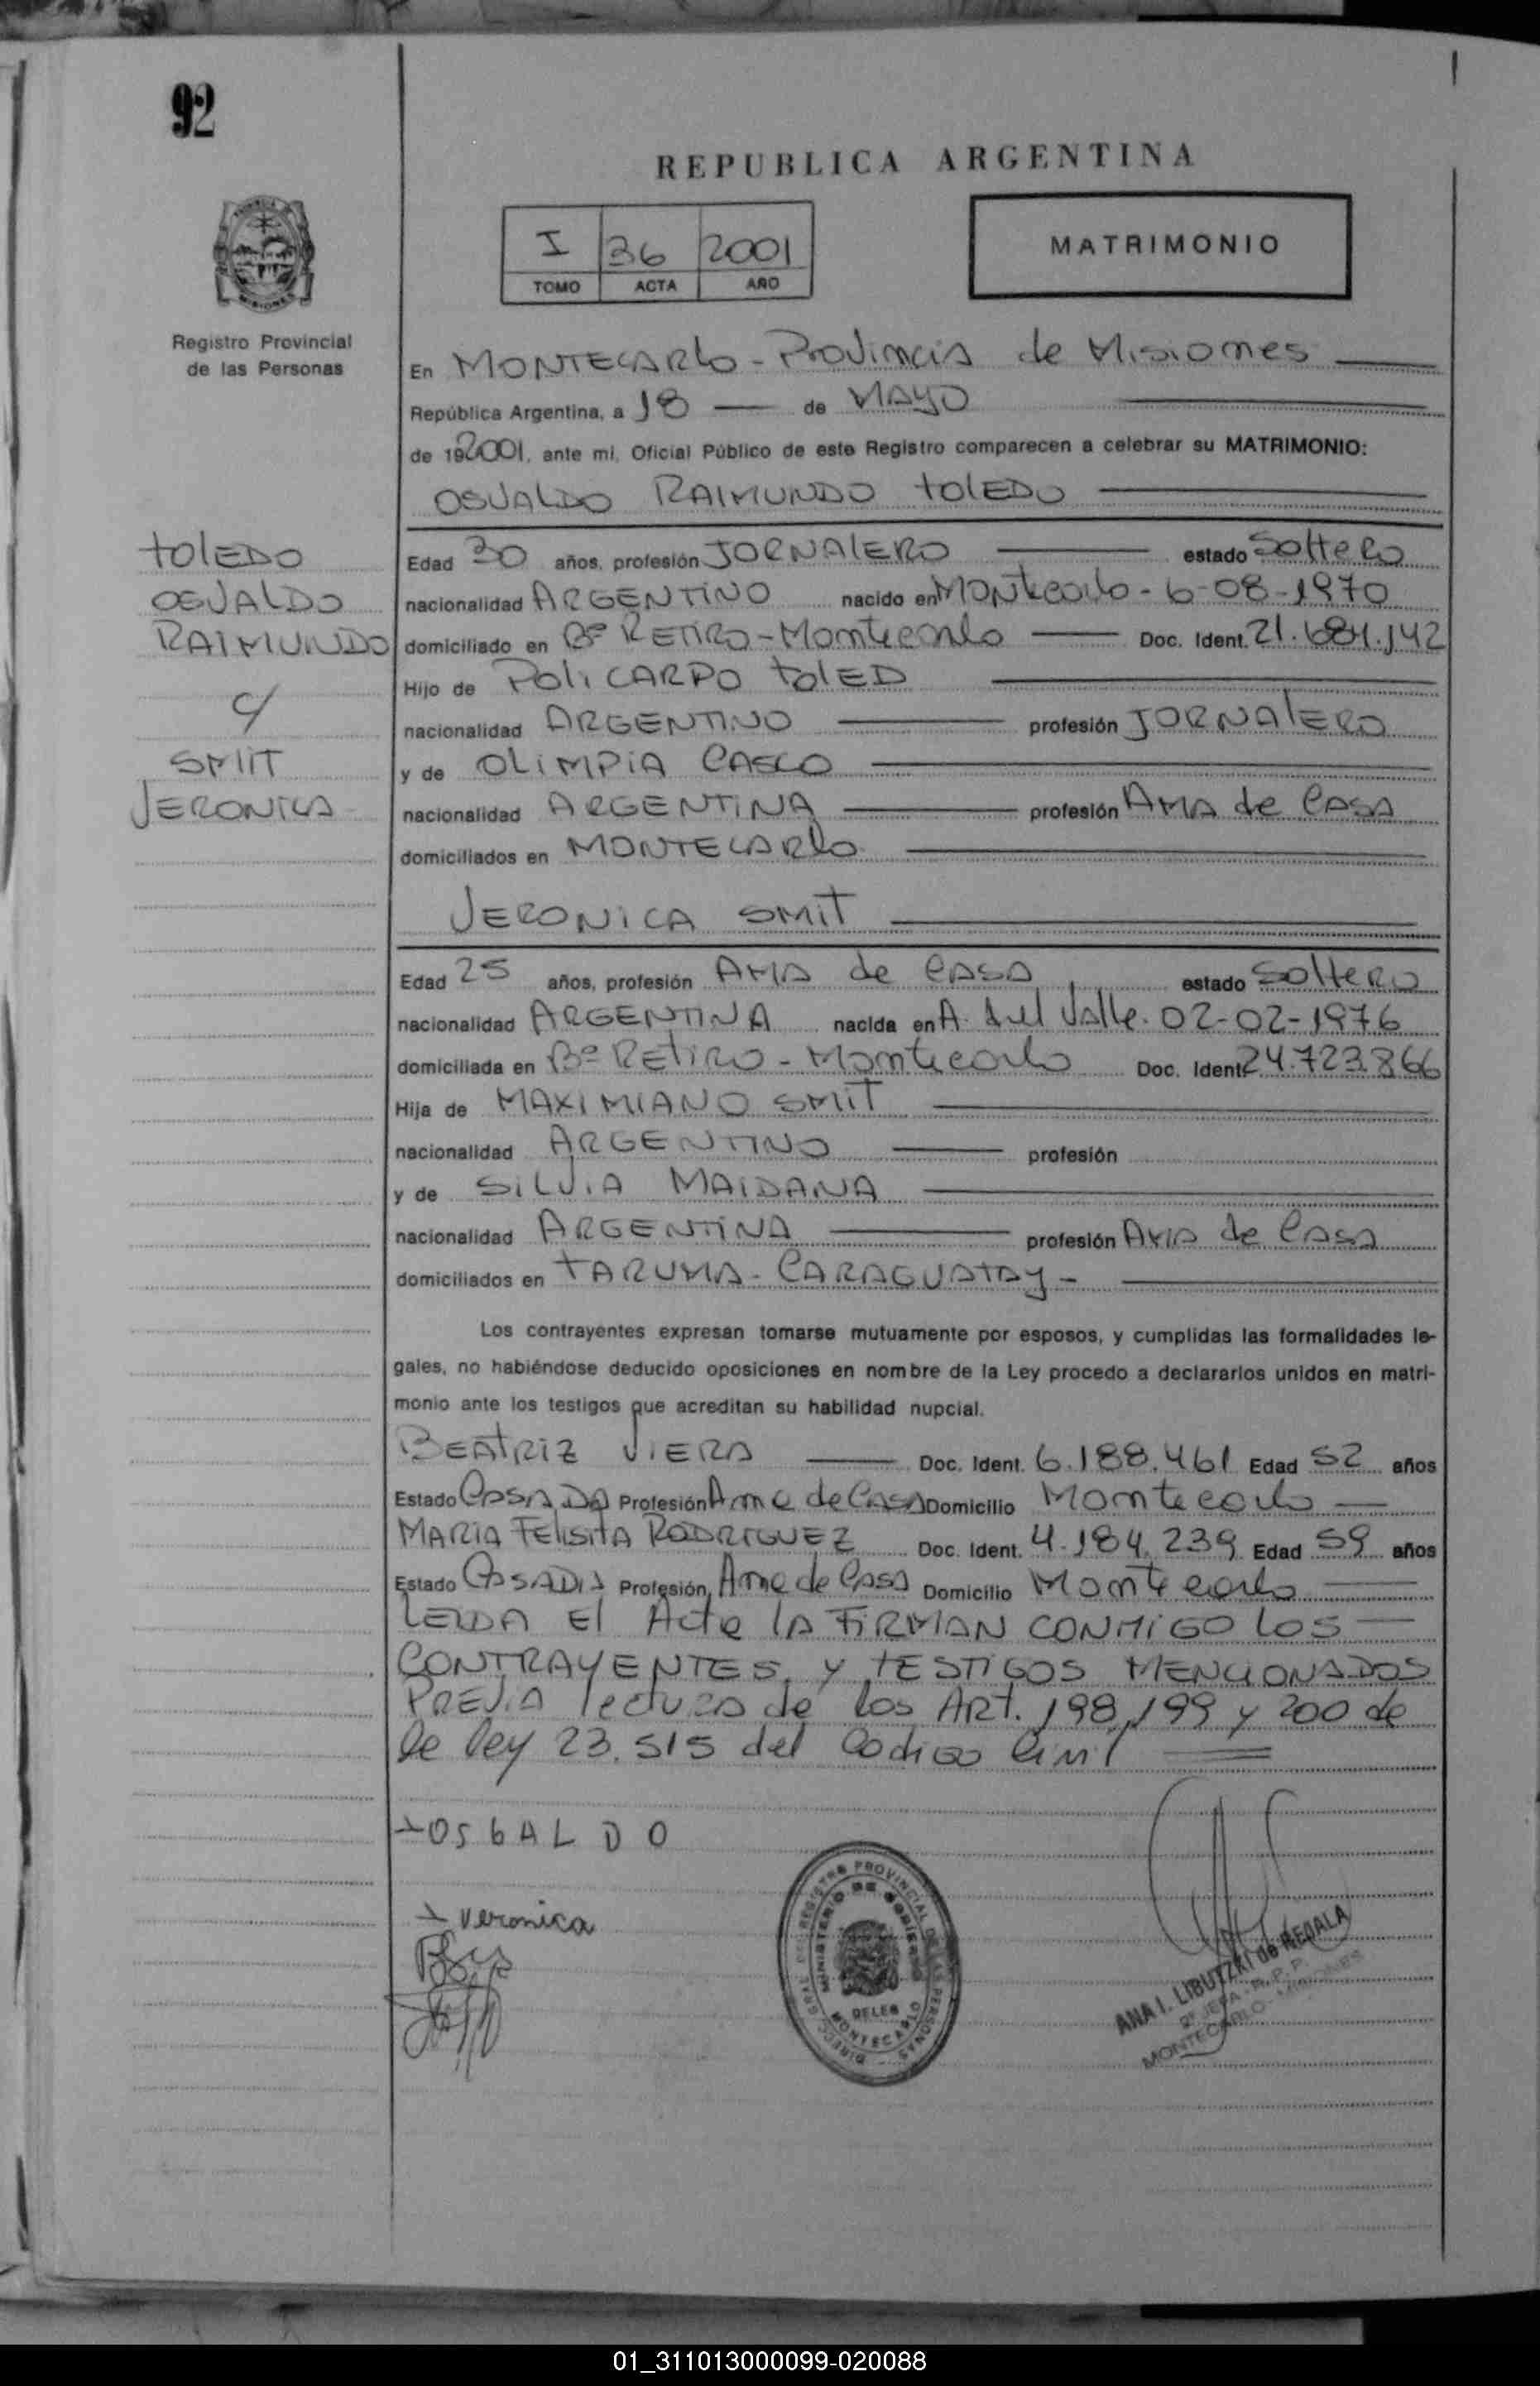 92
REPUBLICA ARGENTINA
I 36 2001
TOMO ACTA AÑO
MATRIMONIO
Registro Provincial
de las Personas
En MONTECARLO - PROVINCIA de MISIONES
República Argentina, a 18 — de MAYO
de 192001, ante mi, Oficial Público de este Registro comparecen a celebrar su MATRIMONIO:
OSVALDO RAIMUNDO TOLEDO
TOLEDO
OSVALDO
RAIMUNDO
c/
SMIT
VERONICA
Edad 30 años, profesión JORNALERO estado Soltero
nacionalidad ARGENTINO nacido en Montecarlo - 6-08-1970
domiciliado en Bº RETIRO - Montecarlo Doc. Ident. 21.681.142
Hijo de POLICARPO TOLED
nacionalidad ARGENTINO profesión JORNALERO
y de OLIMPIA CASCO
nacionalidad ARGENTINA profesión AMA de CASA
domiciliados en MONTECARLO
VERONICA SMIT
Edad 25 años, profesión AMA de CASA estado Soltero
nacionalidad ARGENTINA nacida en A. del Valle. 02-02-1976
domiciliada en Bº RETIRO - Montecarlo Doc. Ident. 24.723.866
Hija de MAXIMIANO SMIT
nacionalidad ARGENTINO profesión
y de SILVIA MAIDANA
nacionalidad ARGENTINA profesión AMA de CASA
domiciliados en TARUMA - CARAGUATAY -
Los contrayentes expresan tomarse mutuamente por esposos, y cumplidas las formalidades le-
gales, no habiéndose deducido oposiciones en nombre de la Ley procedo a declararlos unidos en matri-
monio ante los testigos que acreditan su habilidad nupcial.
BEATRIZ VIERA Doc. Ident. 6.188.461 Edad 52 años
Estado CASADA Profesión Ama de CASA Domicilio Montecarlo
MARIA FELISITA RODRIGUEZ Doc. Ident. 4.184.239 Edad 59 años
Estado CASADA Profesión Ama de Casa Domicilio Montecarlo
LEIDA El Acta LA FIRMAN CONMIGO LOS
CONTRAYENTES, Y TESTIGOS MENCIONADOS
PREVIA lectura de los ART. 198, 199 y 200 de
la ley 23.515 del Codigo Civil
OSBALDO
Veronica
DIRECC. GRAL. DEL REGISTRO PROVINCIAL DE LAS PERSONAS
MINISTERIO DE GOBIERNO
DELEG
MONTECARLO
ANA I. LIBUTZKI de REGALA
MONTECARLO - MISIONES
01_311013000099-020088